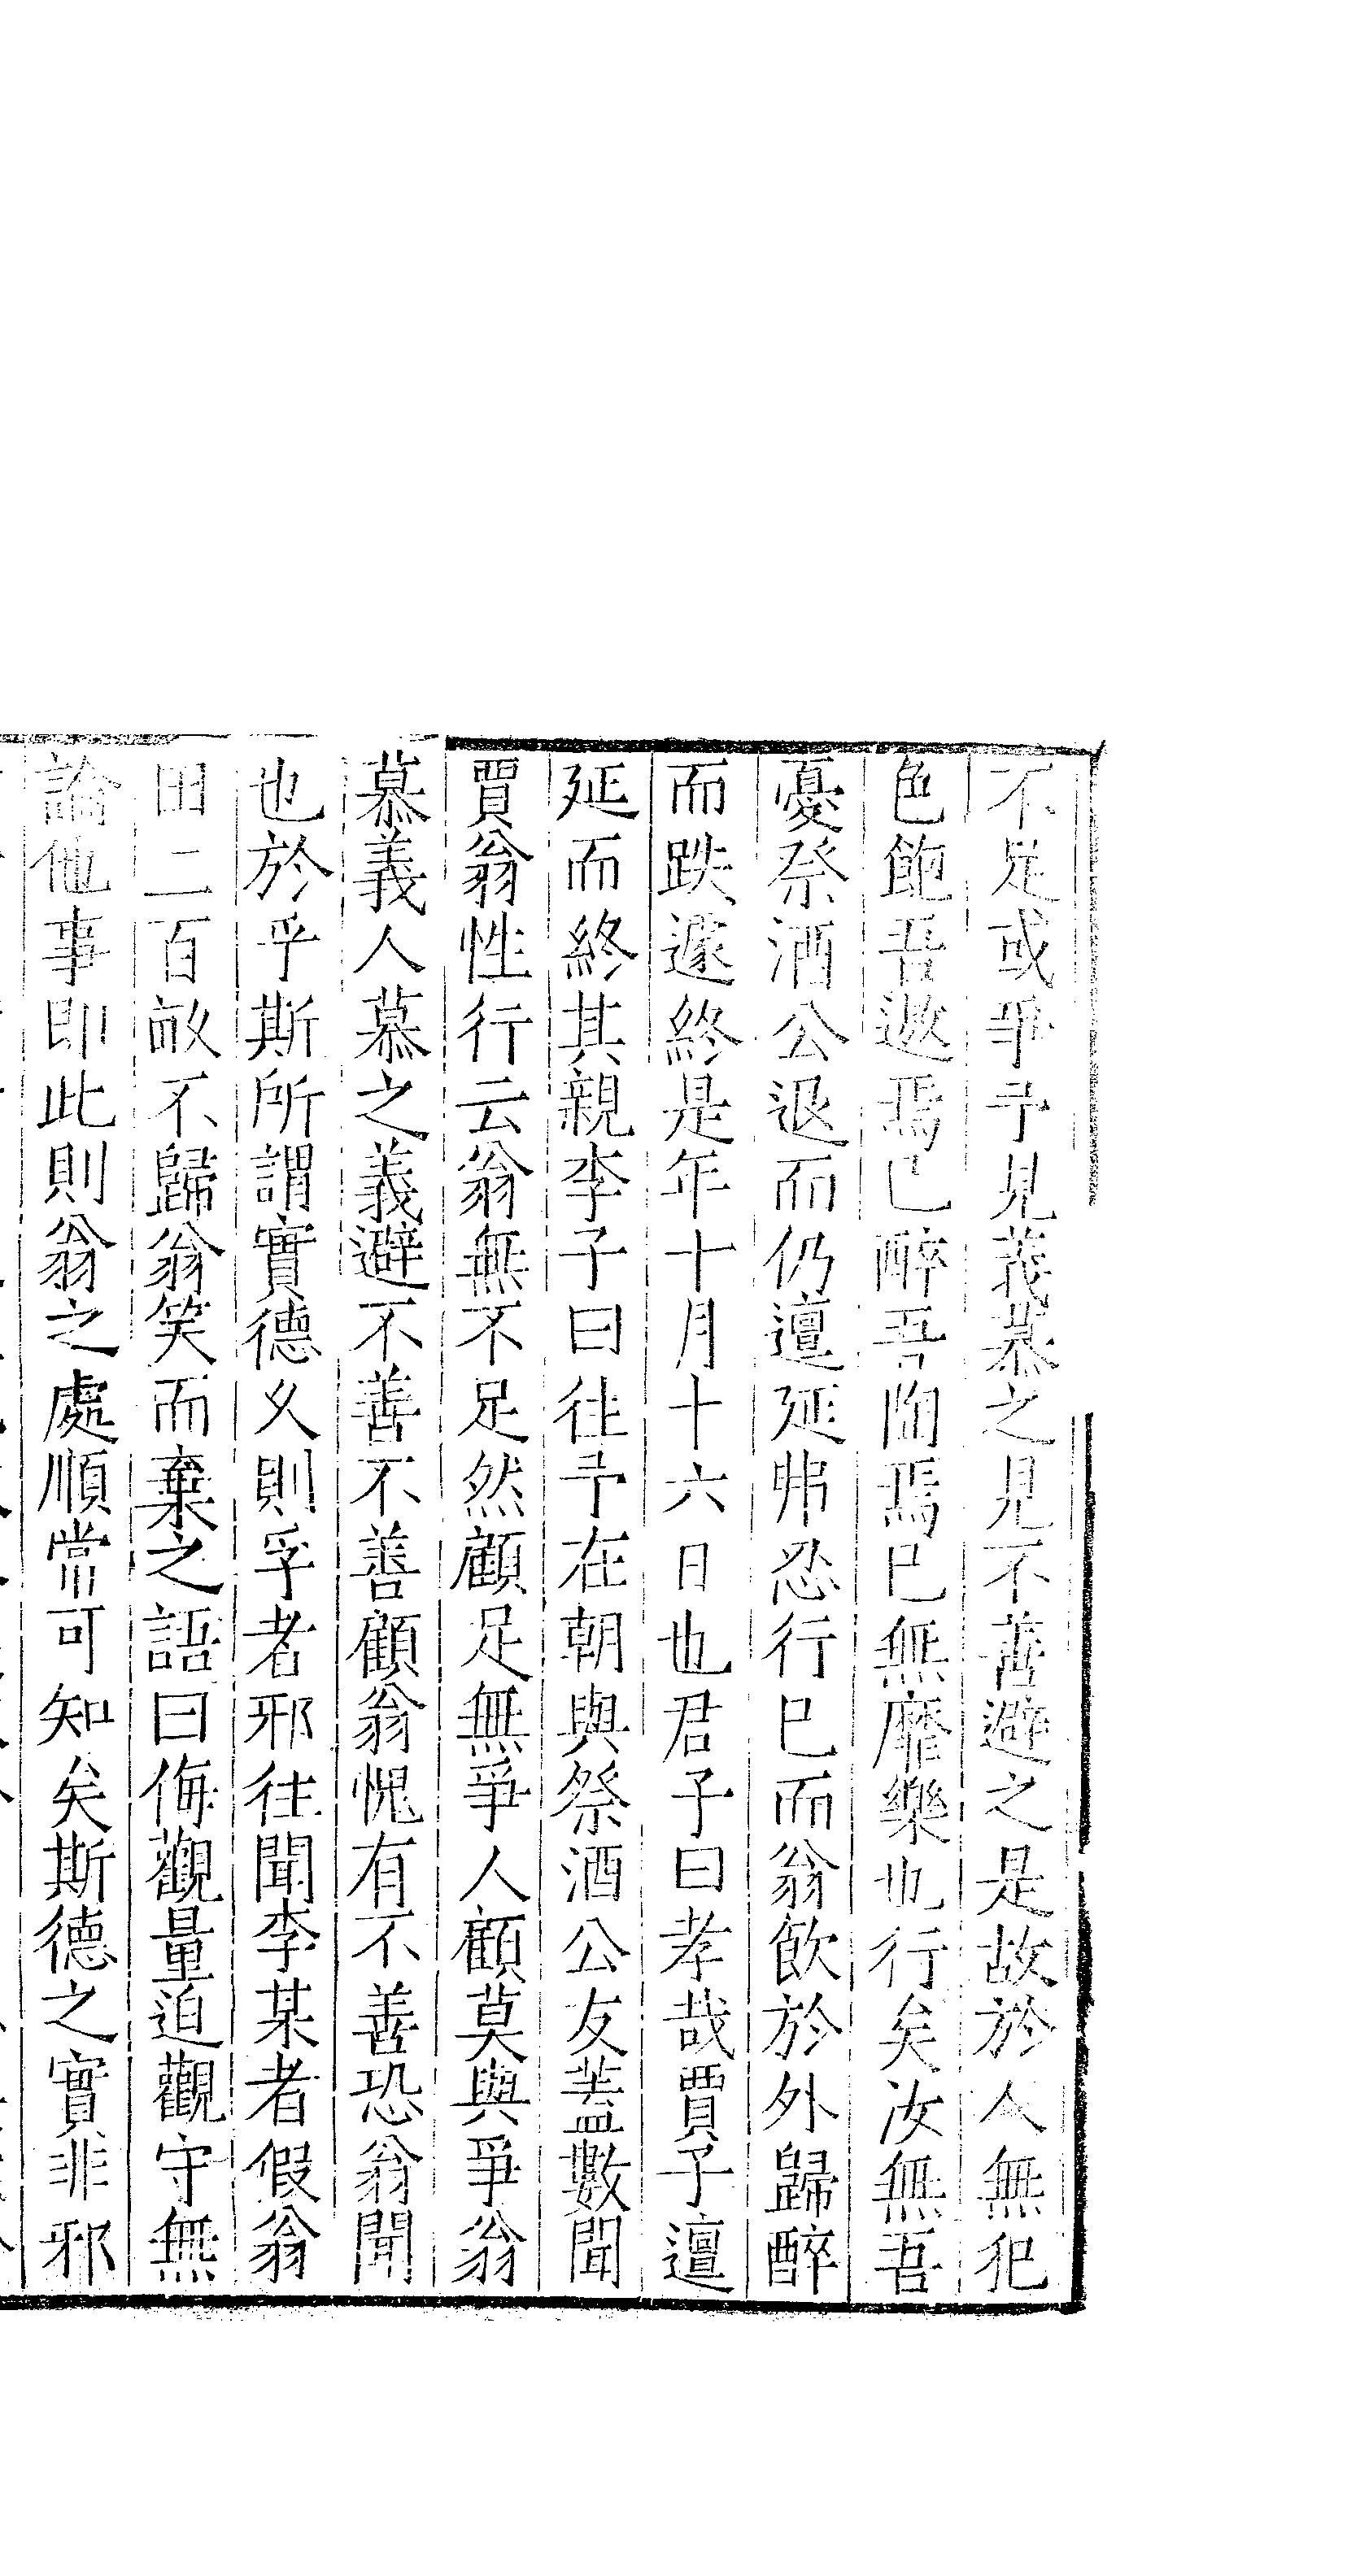 不足或爭予見義慕之見不善避之是故於人無犯
色飽吾遨焉已醉吾陶焉已無靡樂也行矣汝無吾
憂祭酒公退而仍邅延弗忍行已而翁飲於外歸醉
而跌遽終是年十月十六日也君子曰孝哉賈子邅
延而終其親李子曰往予在朝與祭酒公友蓋數聞
賈翁性行云翁無不足然顧足無爭人顧莫與爭翁
慕義人慕之義避不善不善顧翁愧有不善恐翁聞
也於乎斯所謂實德乆則孚者邪往聞李某者假翁
田二百畝不歸翁笑而棄之語曰侮觀量迫觀守無
論他事即此則翁之處順常可知矣斯德之實非邪